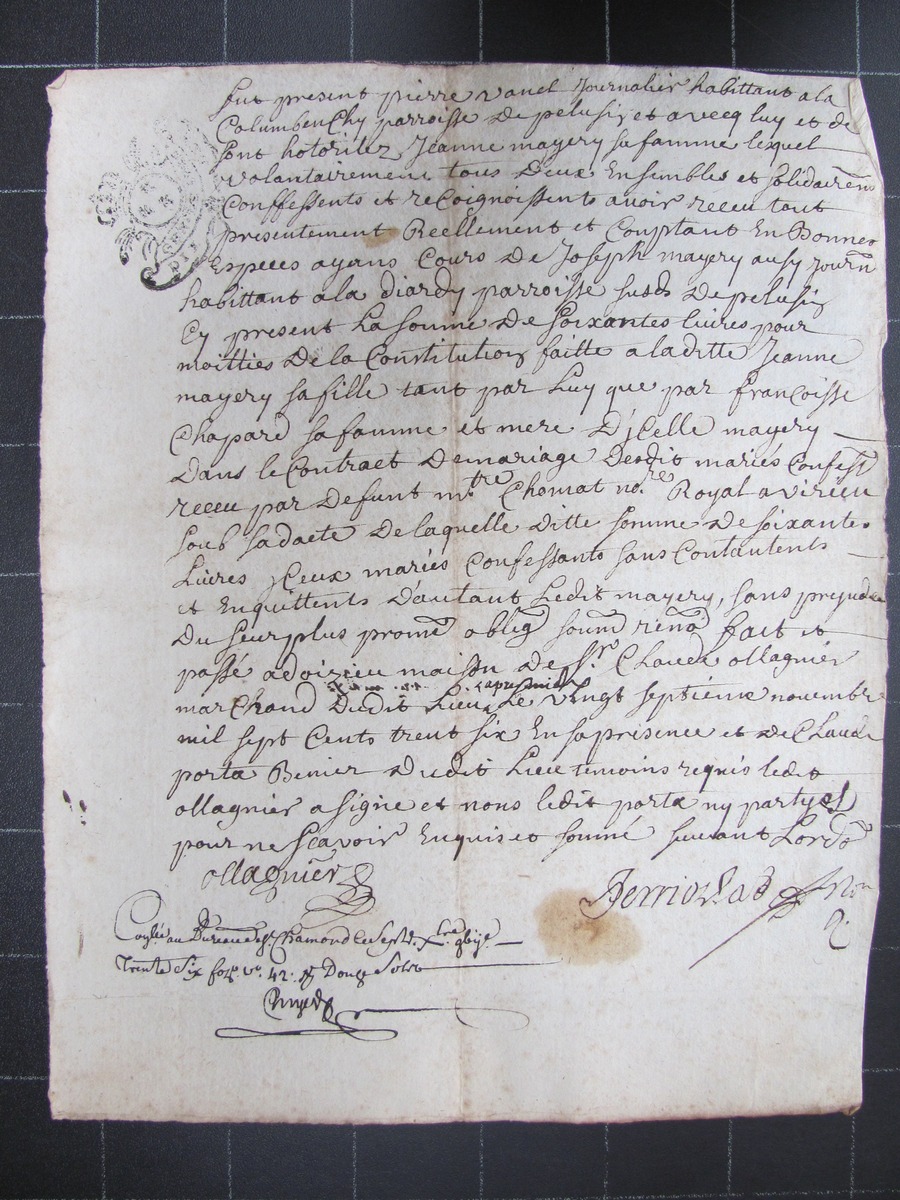 fut present pierre vanel Journalier habittant a la
Columbenchy parroisse De pelusij et avecq luy et de
sont hotorilez Jeanne mayery sa famme lequel
volantairement tous Deux Ensembles et solidairem
Conffessents et reCoignoissents avoir receu tout
presentement Reellement et Comptant En Bonnes
Especes ayans Cours De Joseph mayery ausy Journ
habittant a la diardy parroisse susd De pelusij
Cy present La somme De soixantes livres pour
moitties De la Constitution faitte a laditte Jeanne
mayery sa fille tant par Luy que par francoisse
Chapard sa famme et mere D'jCelle mayery
Dans le Contract De mariage Desdit mariés Confess
receu par Defunt mtre Chomat nore Royal a virieu
soub sa dacte De laquelle Ditte somme De soixantes
Livres jCeux mariés Confessants sans Contantents
et Enquittents D'autant Ledit mayery, sans prejudice
Du seurplus prome oblig soum renon fait et
passé a doizieu maison De Sr. Claude ollagnier
marChand Dudit Lieu Le vingt septième novembre
mil sept Cents trent six En sa presence et de Claude
porta Benier Dudit Lieu temoins requis ledit
ollagnier a signe et nous ledit porta ny partyes
pour ne scavoir Enquis et sommé suivant Lordo
ollagnier
au Bureau de St. Chamond le sept
Trente Six fo. vo. 42. Douze Sols